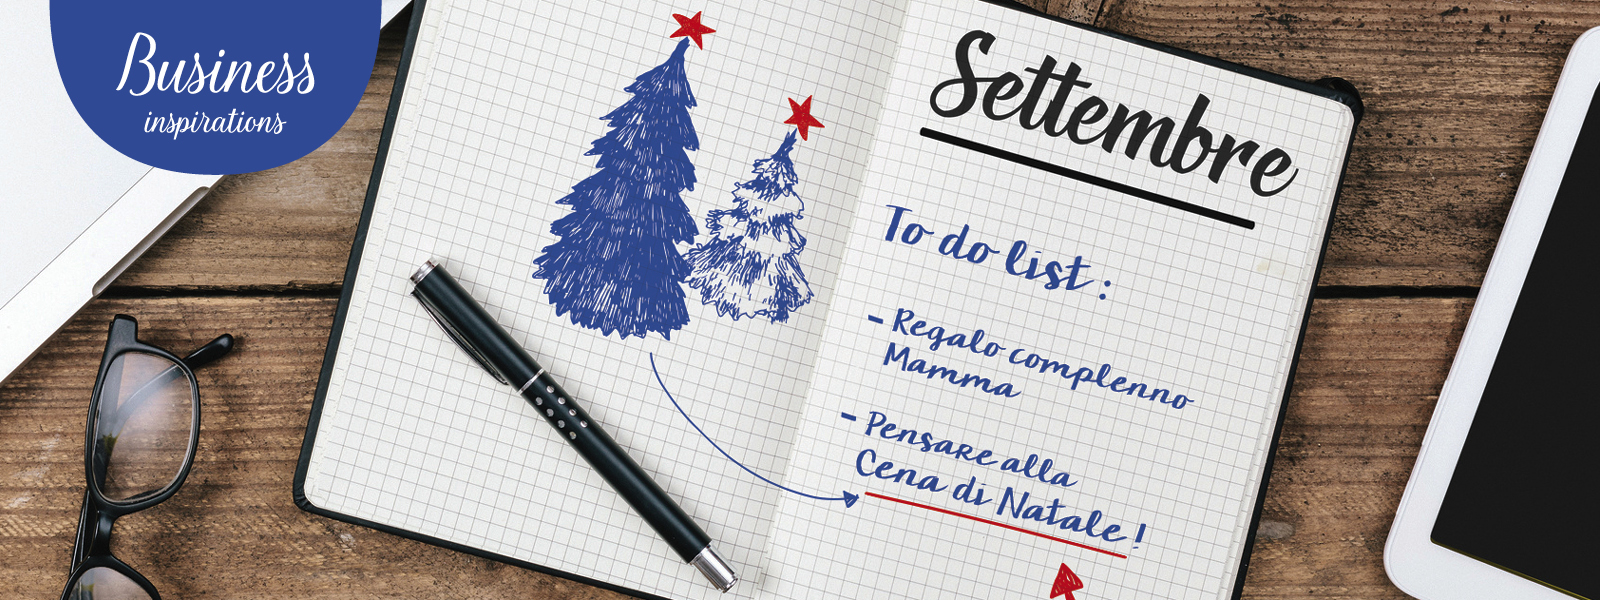 Business
inspirations
Settembre
To do list :
- Regalo complenno
Mamma
- Pensare alla
Cena di Natale !